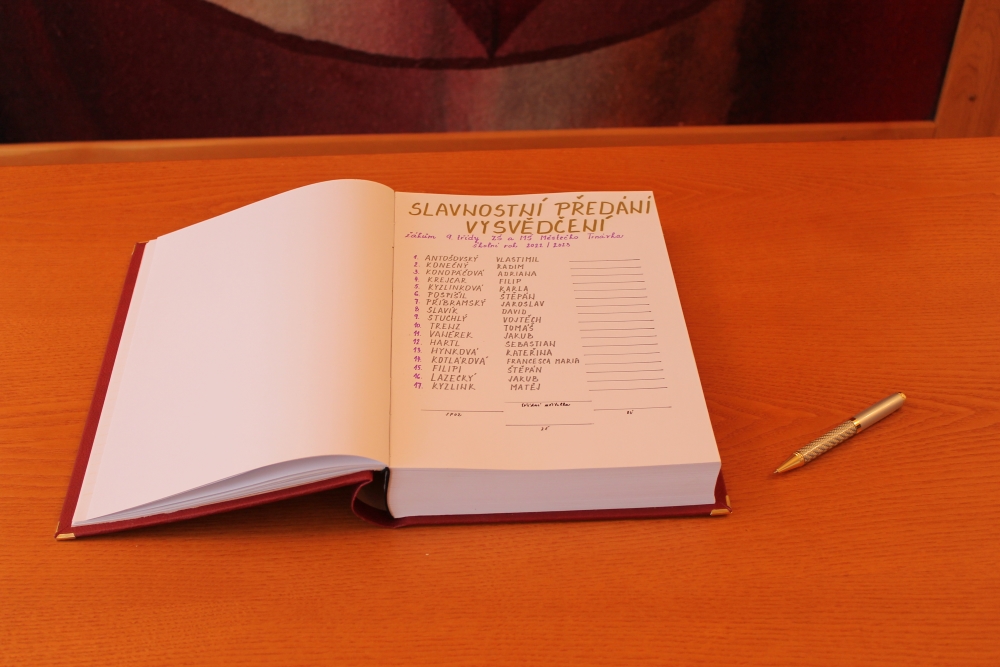 SLAVNOSTNÍ PŘEDÁNÍ
VYSVĚDČENÍ
žákům 9. třídy ZŠ a MŠ Městečko Trnávka
školní rok 2022/2023
1. ANTOŠOVSKÝ VLASTIMIL
2. KONEČNÝ RADIM
3. KONOPÁČOVÁ ADRIANA
4. KREJČAR FILIP
5. KYZLINKOVÁ KARLA
6. POSPÍŠIL ŠTĚPÁN
7. PŘÍBRAMSKÝ JAROSLAV
8. SLAVÍK DAVID
9. ŠTUCHLÝ VOJTĚCH
10. TRENZ TOMÁŠ
11. VAŇÉREK JAKUB
12. HARTL SEBASTIAN
13. HYNKOVÁ KATEŘINA
14. KOTLÁROVÁ FRANCESCA MARIA
15. FILIPI ŠTĚPÁN
16. LAZECKÝ JAKUB
17. KYZLINK MATĚJ
třídní učitelka